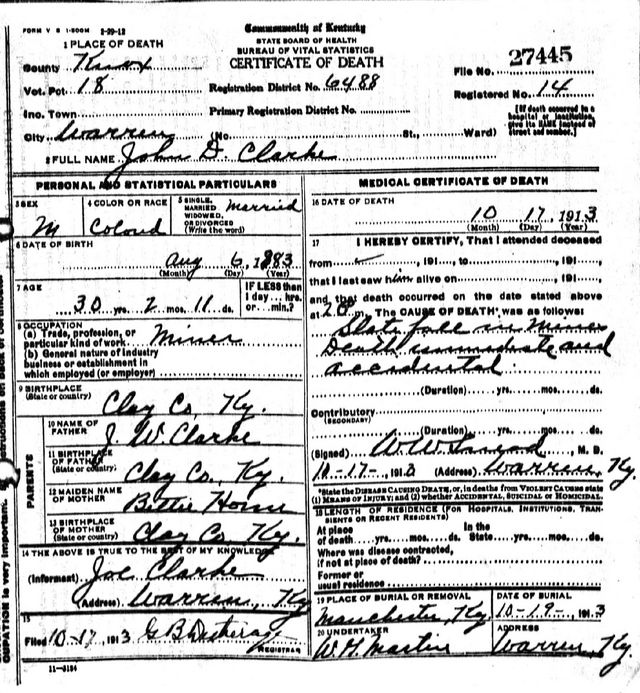 FORM V S 1-500M 2-29-12
Commonwealth of Kentucky
STATE BOARD OF HEALTH
BUREAU OF VITAL STATISTICS
CERTIFICATE OF DEATH
1 PLACE OF DEATH
County Knox
Vot. Pct 18
Registration District No. 6488
File No. 27445
Registered No. 14
Inc. Town
Primary Registration District No.
[If death occurred in a hospital or institution, give its NAME instead of street and number.]
City Warren (No. St., Ward)
2 FULL NAME John D. Clarke
PERSONAL AND STATISTICAL PARTICULARS
3 SEX M
4 COLOR OR RACE Colord
5 SINGLE, MARRIED, WIDOWED, OR DIVORCED (Write the word) Married
6 DATE OF BIRTH
Aug 6, 1883
(Month) (Day) (Year)
7 AGE
30 yrs. 2 mos. 11 ds.
IF LESS than 1 day... hrs. or... min.?
8 OCCUPATION
(a) Trade, profession, or particular kind of work Miner
(b) General nature of industry business or establishment in which employed (or employer)
9 BIRTHPLACE (State or country) Clay Co, Ky.
PARENTS
10 NAME OF FATHER J. W. Clarke
11 BIRTHPLACE OF FATHER (State or country) Clay Co, Ky.
12 MAIDEN NAME OF MOTHER Bettie
13 BIRTHPLACE OF MOTHER (State or country) Clay Co. Ky.
14 THE ABOVE IS TRUE TO THE BEST OF MY KNOWLEDGE
(Informant) Joe Clarke
(Address) Warren, Ky
15
Filed 10-17, 1913 G B
REGISTRAR
11-3184
MEDICAL CERTIFICATE OF DEATH
16 DATE OF DEATH
10 17, 1913
(Month) (Day) (Year)
17 I HEREBY CERTIFY, That I attended deceased
from , 191 , to , 191 ,
that I last saw him alive on , 191 ,
and that death occurred on the date stated above
at m. The CAUSE OF DEATH was as follows:
Slate fall in Mines
Death immediate and
accidental
(Duration) yrs. mos. ds.
Contributory
(SECONDARY)
(Duration) yrs. mos. ds.
(Signed) W. W. , M. D.
10-17-, 1913 (Address) Warren, Ky.
*State the DISEASE CAUSING DEATH, or, in deaths from VIOLENT CAUSES state (1) MEANS OF INJURY; and (2) whether ACCIDENTAL, SUICIDAL or HOMICIDAL.
18 LENGTH OF RESIDENCE (FOR HOSPITALS, INSTITUTIONS, TRANSIENTS OR RECENT RESIDENTS)
At place of death yrs. mos. ds. In the State yrs. mos. ds.
Where was disease contracted, if not at place of death?
Former or usual residence
19 PLACE OF BURIAL OR REMOVAL Manchester, Ky
DATE OF BURIAL 10-19-, 1913
20 UNDERTAKER W. H. Martin
ADDRESS Warren, Ky.